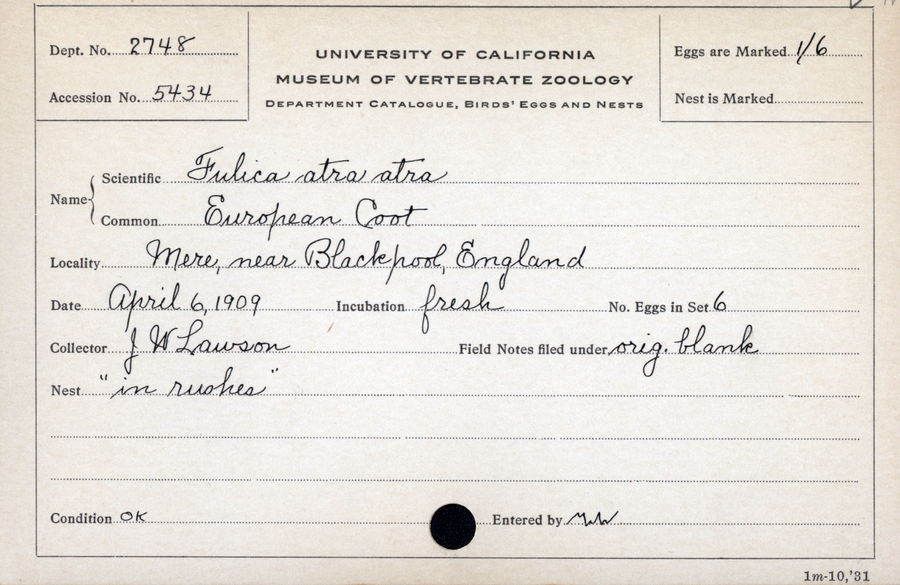 Dept. No. 2748
Accession No. 5434
UNIVERSITY OF CALIFORNIA
MUSEUM OF VERTEBRATE ZOOLOGY
DEPARTMENT CATALOGUE, BIRDS' EGGS AND NESTS
Eggs are Marked 1/6
Nest is Marked
Name
Scientific Fulica atra atra
Common European Coot
Locality Mere, near Blackpool, England
Date April 6, 1909 Incubation fresh No. Eggs in Set 6
Collector J W Lawson Field Notes filed under orig. blank
Nest "in rushes"
Condition OK Entered by
1m-10,'31